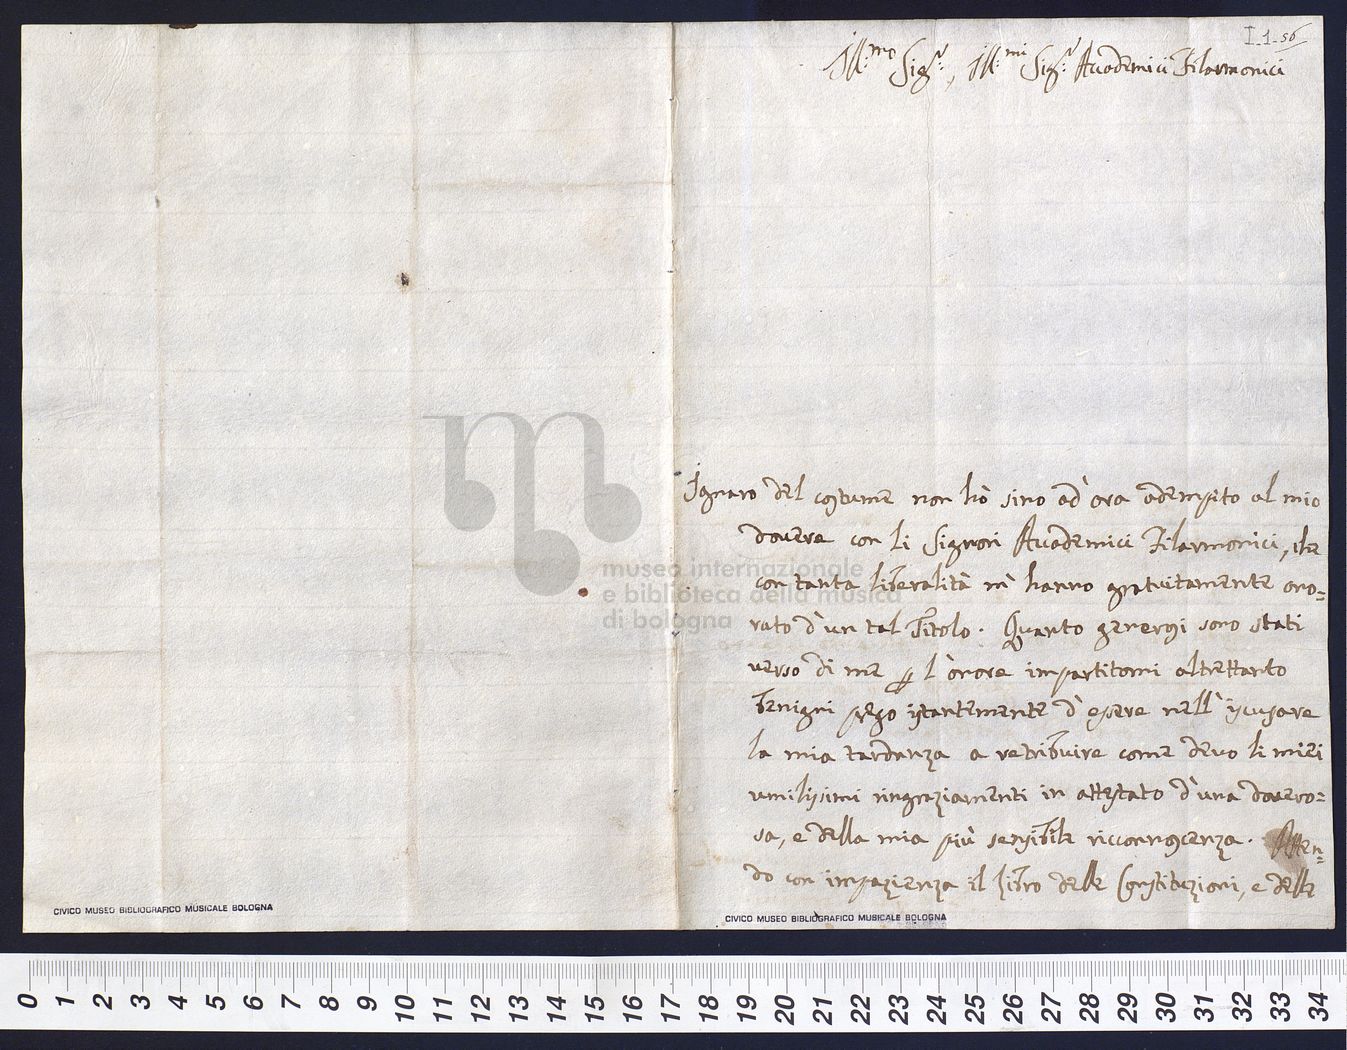 I.1.56
Ill:mo Sigr:, Ill:mi Sigr: Accademici Filarmonici
Ignaro del costume non hò sino ad'ora adempito al mio
dovere con li Signori Accademici Filarmonici, che
con tanta liberalità m'hanno gratuitamente ono=
rato d'un tal Titolo. Quanto generosi sono stati
verso di me l'onore impartitomi altrettanto
benigni prego istantemente d'essere nell'iscusare
la mia tardanza a retribuire come devo li miei
umilissimi ringraziamenti in attestato d'una dovero=
sa, e della mia più sensibile riconnoscenza. Atten=
do con impazienza il Libro delle Constituzioni, e delle
museo internazionale
e biblioteca della musica
di bologna
CIVICO MUSEO BIBLIOGRAFICO MUSICALE BOLOGNA
CIVICO MUSEO BIBLIOGRAFICO MUSICALE BOLOGNA
0 1 2 3 4 5 6 7 8 9 10 11 12 13 14 15 16 17 18 19 20 21 22 23 24 25 26 27 28 29 30 31 32 33 34